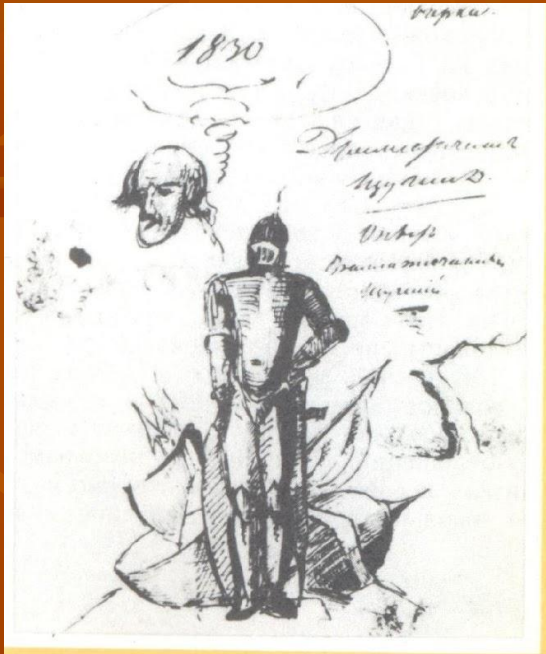 очерки.
1830
Драматическiя
Изученiя.
Опытъ
Драматическихъ
Изученiй